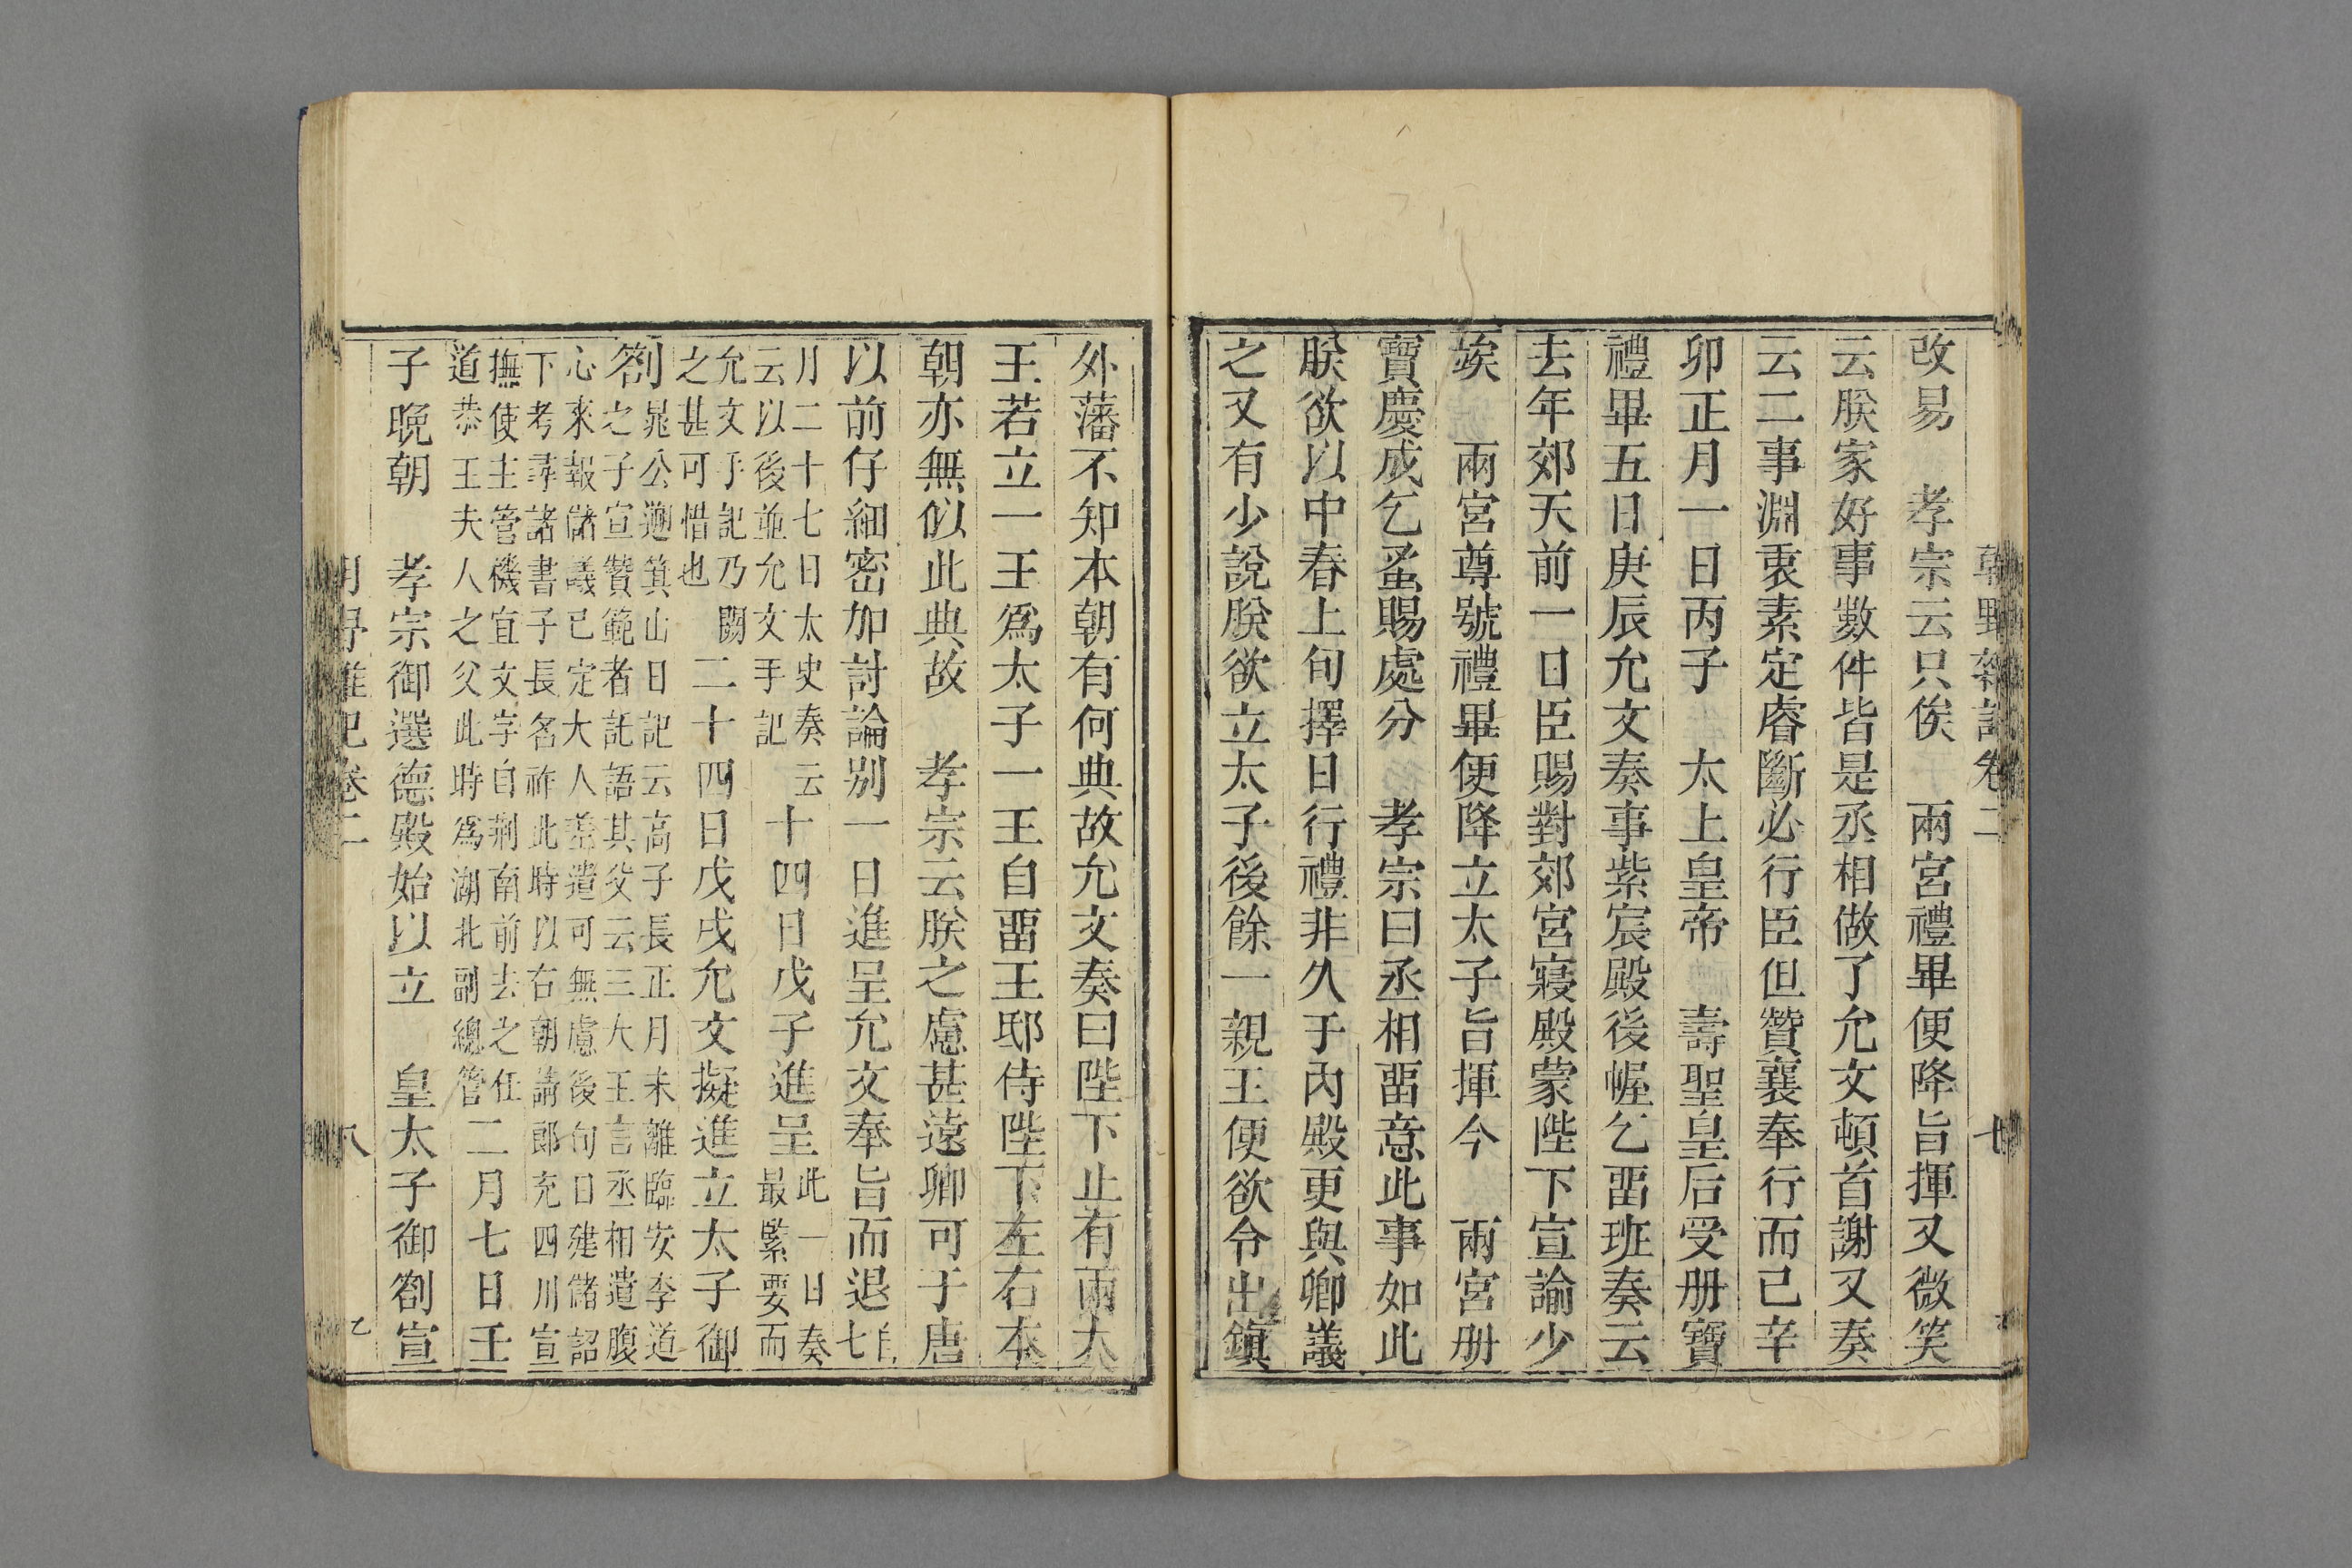 朝野雜記卷二 七
改易 孝宗云只俟 兩宮禮畢便降旨揮又微笑
云朕家好事數件皆是丞相做了允文頓首謝又奏
云二事淵衷素定睿斷必行臣但贊襄奉行而已辛
卯正月一日丙子 太上皇帝 壽聖皇后受册寶
禮畢五日庚辰允文奏事紫宸殿後幄乞畱班奏云
去年郊天前一日臣賜對郊宮寢殿蒙陛下宣諭少
俟 兩宮尊號禮畢便降立太子旨揮今 兩宮册
寶慶成乞蚤賜處分 孝宗曰丞相畱意此事如此
朕欲以中春上旬擇日行禮非久于内殿更與卿議
之又有少說朕欲立太子後餘一親王便欲令出鎭
外藩不知本朝有何典故允文奏曰陛下止有兩大
王若立一王爲太子一王自畱王邸侍陛下左右本
朝亦無似此典故 孝宗云朕之慮甚遠卿可于唐
以前仔細密加討論别一日進呈允文奉旨而退自七
月二十七日太史奏云
云以後並允文手記
十四日戊子進呈此一日奏
最緊要而
允文手記乃闕
之甚可惜也
二十四日戊戌允文擬進立太子御
劄晁公遡箕山日記云高子長正月末離臨安李道
之子宣贊範者託語其父云三大王言丞相遣腹
心來報儲議已定大人差遣可無慮後旬日建儲詔
下考尋諸書子長名祚此時以右朝請郎充四川宣
撫使主管機宜文字自荆南前去之任
道恭王夫人之父此時爲湖北副總管
二月七日壬
子晚朝 孝宗御選德殿始以立 皇太子御劄宣
朝野雜記卷二 八